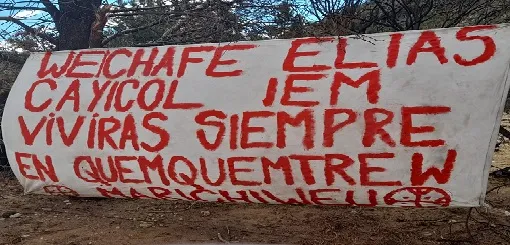 WEICHAFE ELIAS
CAYICOL JEM
VIVIRAS SIEMPRE
EN QUEMQUEMTREW
MARICHIWEU